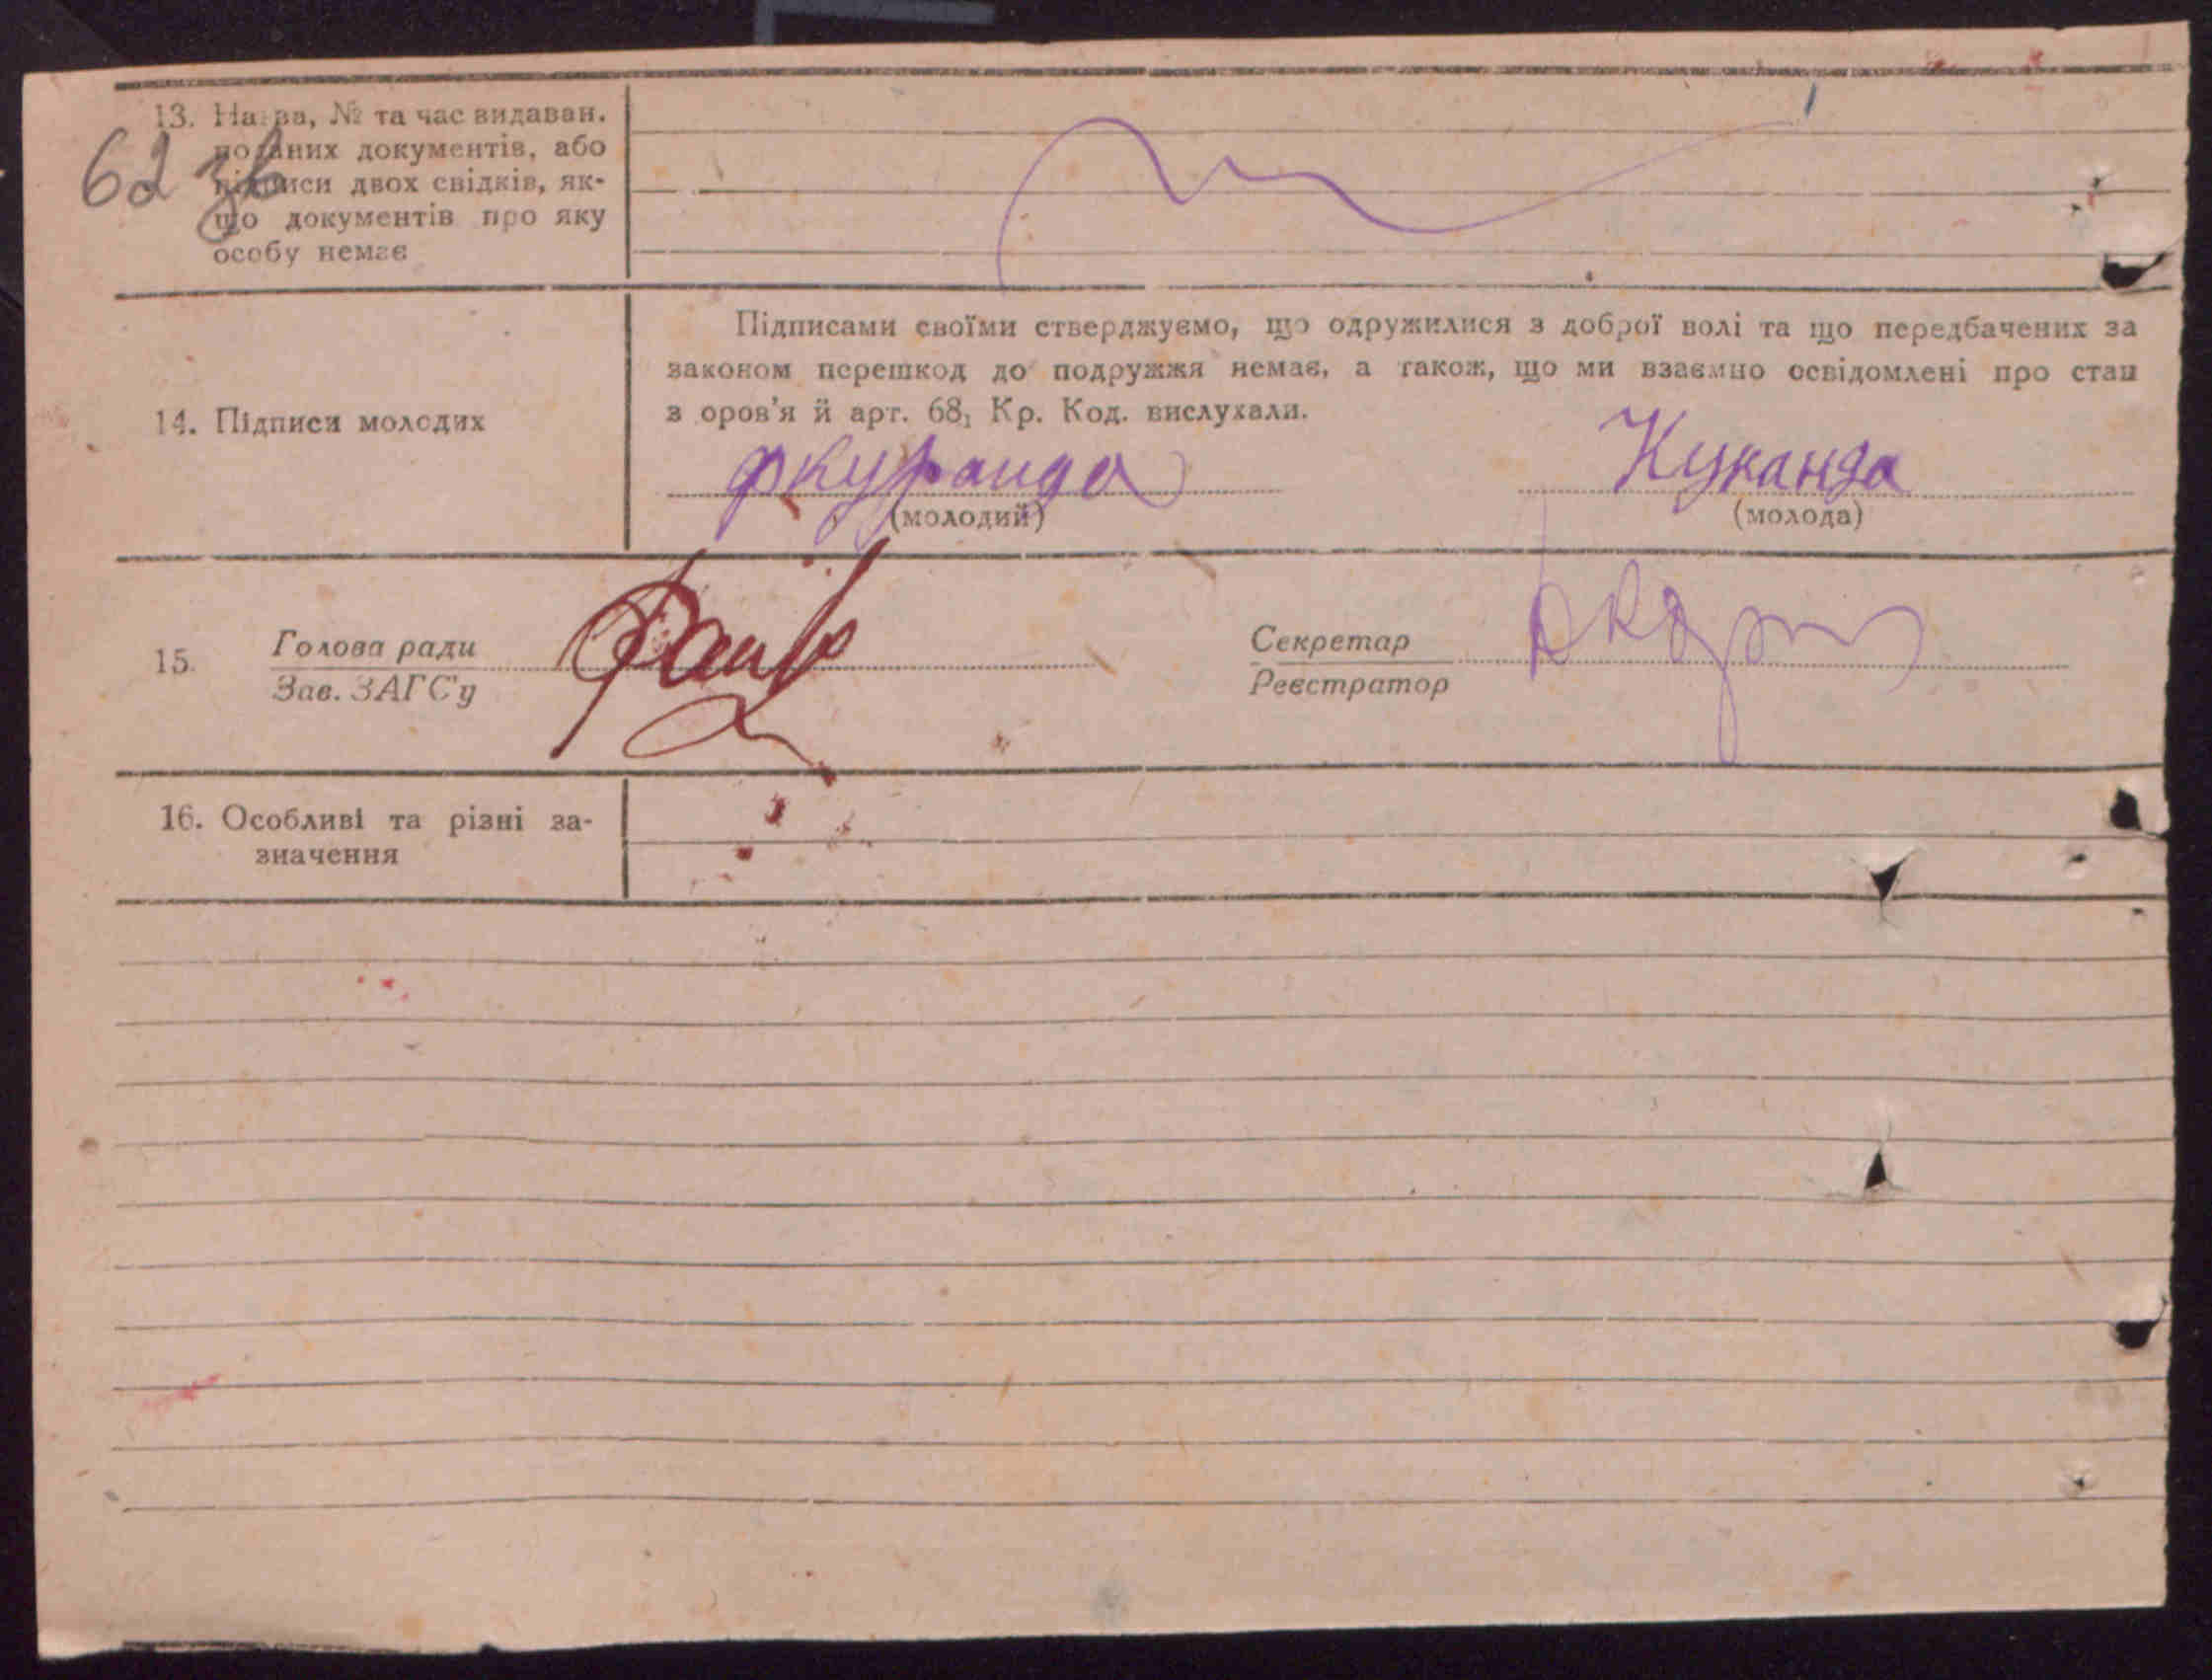 13. Назва, № та час видаван.
поданих документів, або
підписи двох свідків, як-
що документів про яку
особу немає
62 зв
Підписами своїми стверджуємо, що одружилися з доброї волі та що передбачених за
законом перешкод до подружжя немає, а також, що ми взаємно освідомлені про стан
з оров'я й арт. 68₁ Кр. Код. вислухали.
14. Підписи молодих
Куканда
(молодий) (молода)
15. Голова ради
Зав. ЗАГС'у
Секретар
Реєстратор
16. Особливі та різні за-
значення